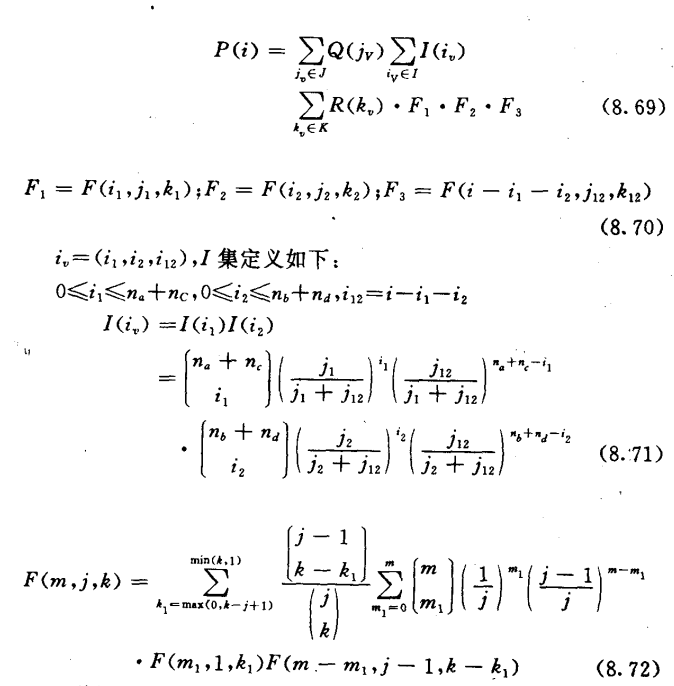 P(i) = ∑_{j_v∈J} Q(j_V) ∑_{i_V∈I} I(i_v)
∑_{k_v∈K} R(k_v) · F_1 · F_2 · F_3 (8.69)
F_1 = F(i_1,j_1,k_1);F_2 = F(i_2,j_2,k_2);F_3 = F(i − i_1 − i_2,j_{12},k_{12})
(8.70)
i_v=(i_1,i_2,i_{12}),I 集定义如下:
0⩽i_1⩽n_a+n_C,0⩽i_2⩽n_b+n_d,i_{12}=i−i_1−i_2
I(i_v) =I(i_1)I(i_2)
= \binom{n_a + n_c}{i_1} (\frac{j_1}{j_1 + j_{12}})^{i_1} (\frac{j_{12}}{j_1 + j_{12}})^{n_a+n_c−i_1}
· \binom{n_b + n_d}{i_2} (\frac{j_2}{j_2 + j_{12}})^{i_2} (\frac{j_{12}}{j_2 + j_{12}})^{n_b+n_d−i_2} (8.71)
F(m,j,k) = ∑_{k_1=max(0,k−j+1)}^{min(k,1)} \frac{\binom{j − 1}{k − k_1}}{\binom{j}{k}} ∑_{m_1=0}^{m} \binom{m}{m_1} (\frac{1}{j})^{m_1} (\frac{j − 1}{j})^{m−m_1}
· F(m_1,1,k_1)F(m − m_1,j − 1,k − k_1) (8.72)